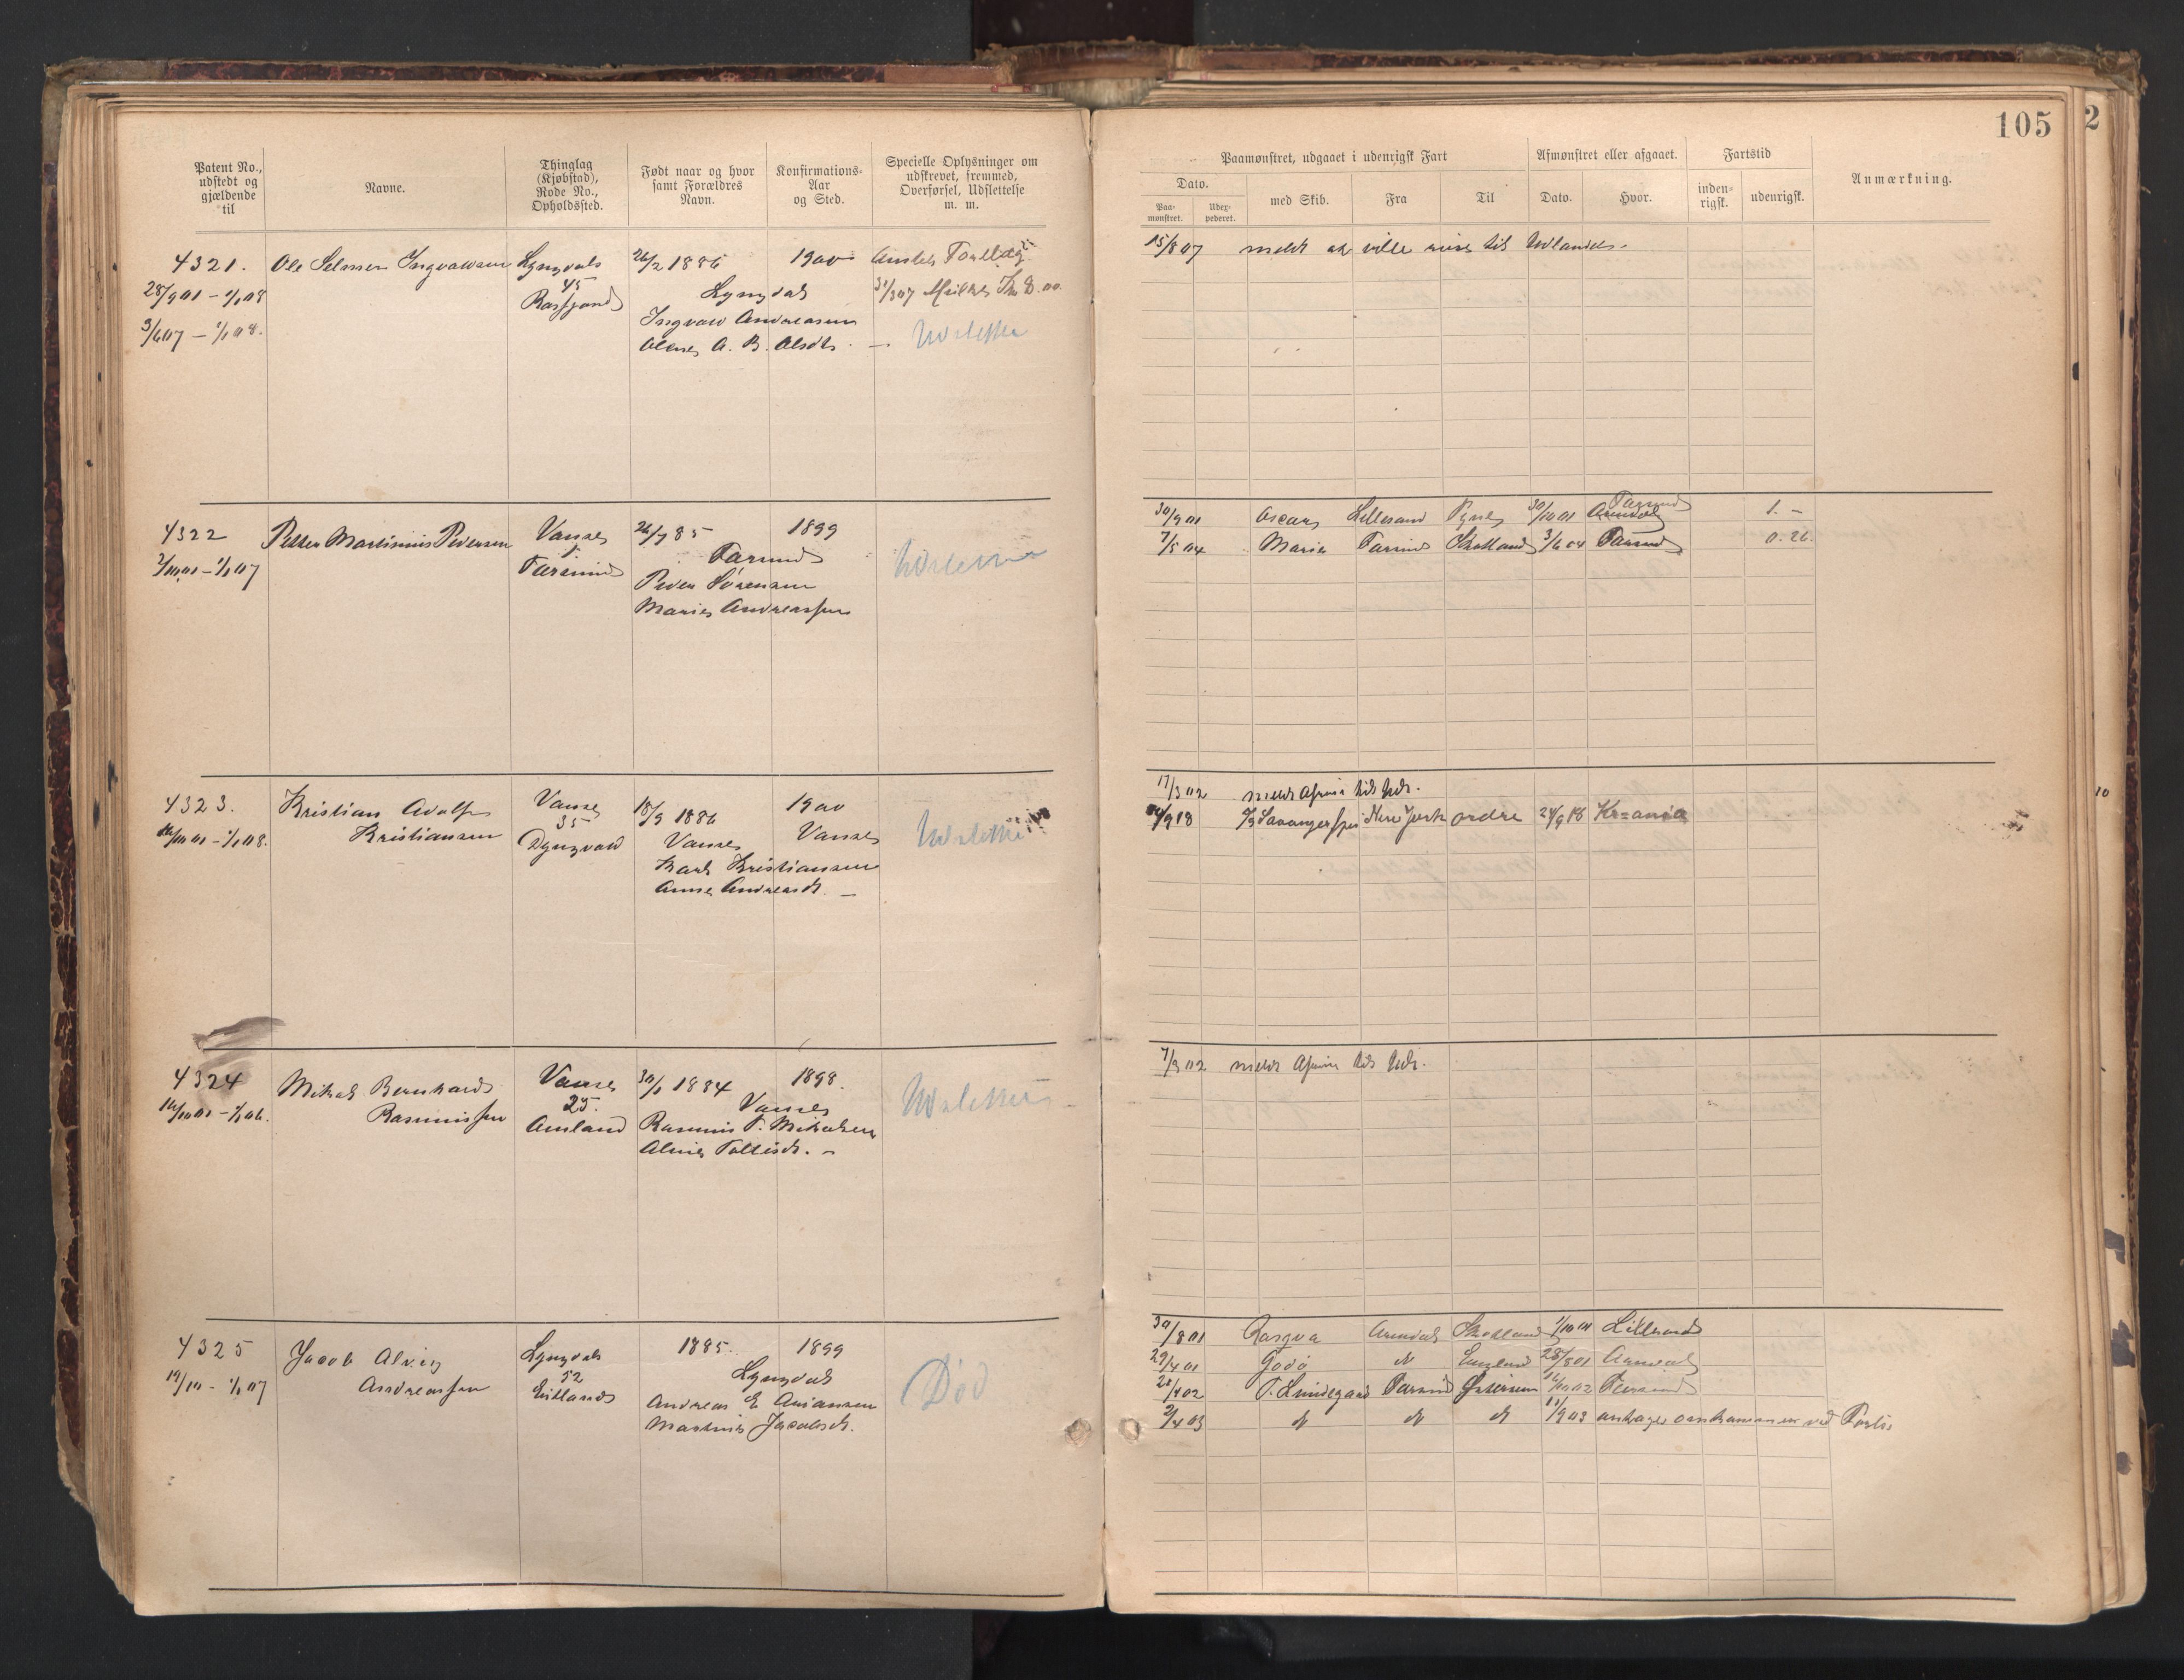 105
2
Patent No., udstedt og gjældende til
Navne.
Thinglag (Kjøbstad), Rode No., Opholdssted.
Født naar og hvor samt Forældres Navn.
Konfirmations-Aar og Sted.
Specielle Oplysninger om udskrevet, fremmed, Overførsel, Udslettelse m. m.
Paamønstret, udgaaet i udenrigsk Fart
Afmønstret eller afgaaet.
Fartstid
Anmærkning.
Dato.
med Skib.
Fra
Til
Dato.
Hvor.
inden-rigsk.
udenrigsk.
Paa-mønstret.
4321.
28/9 01 – 1/1 08
3/6 07 – 1/1 08.
Ole Selmer Ingvaldsen
Lyngdal
45
26/2 1886
Lyngdal
Ingvald Andreasen
1900
Udslettet
15/8 07 meldt at ville reise til Udlandet.
4322
2/10 01 – 1/1 07
Petter Martinius Pedersen
Vanse
Farsund
26/7 85
Farsund
Peder Sørensen
Marie Andreassen
1899
Udslettet
30/9 01 Oscar Lillesand Tyne 30/10 01 Arendal Farsund 1. –
7/5 04 Marie Farsund Skotland 3/6 04 Farsund 0.26.
4323.
16/10 01 – 1/1 08.
Kristian Adolf
Kristiansen
Vanse
35
18/9 1886
Vanse
Karl Kristiansen
Anne Andreasdt. –
1900
Vanse
Udslettet
17/3 02 meldt Afreise til Udl.
/9 18 Stavangerfjord New York ordre 24/9 18 Kr=ania
4324
16/10 01 – 1/1 06.
Mikal Bernhard
Rasmussen
Vanse
25.
Amland
30/1 1884
Vanse
Rasmus T. Mikalsen
1898.
Udslettet
7/3 02 meldt Afreise til Udl.
4325
19/10 – 1/1 07
Jacob Alvin
Andreassen
Lyngdal
52
Eitland
1885.
Lyngdal
Andreas E
Martine Jacobsdt.
1899
Død
30/8 01 Arendal Skotland 1/10 01 Lillesand
29/4 01 Godø do England 28/8 01 Arendal
T. Lundegaard Farsund Østersøen Farsund
2/4 03 do do do 11/9 03 antages omkommen ved